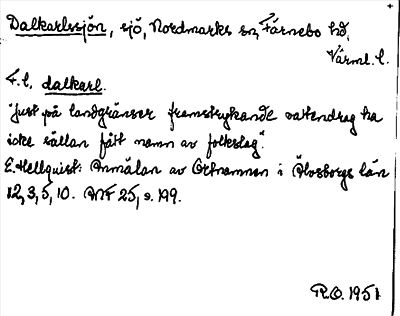 Dalkarlssjön, sjö, Nordmarks sn, Färnebo hd,
Värml. l.
F. l. dalkarl.
"Just på landgränser framstrykande vattendrag ha
icke sällan fått namn av folkslag".
E. Hellquist: Anmälan av Ortnamnen i Älvsborgs län
12, 3, 5, 10. ANF 25, s. 199.
R.O. 1951